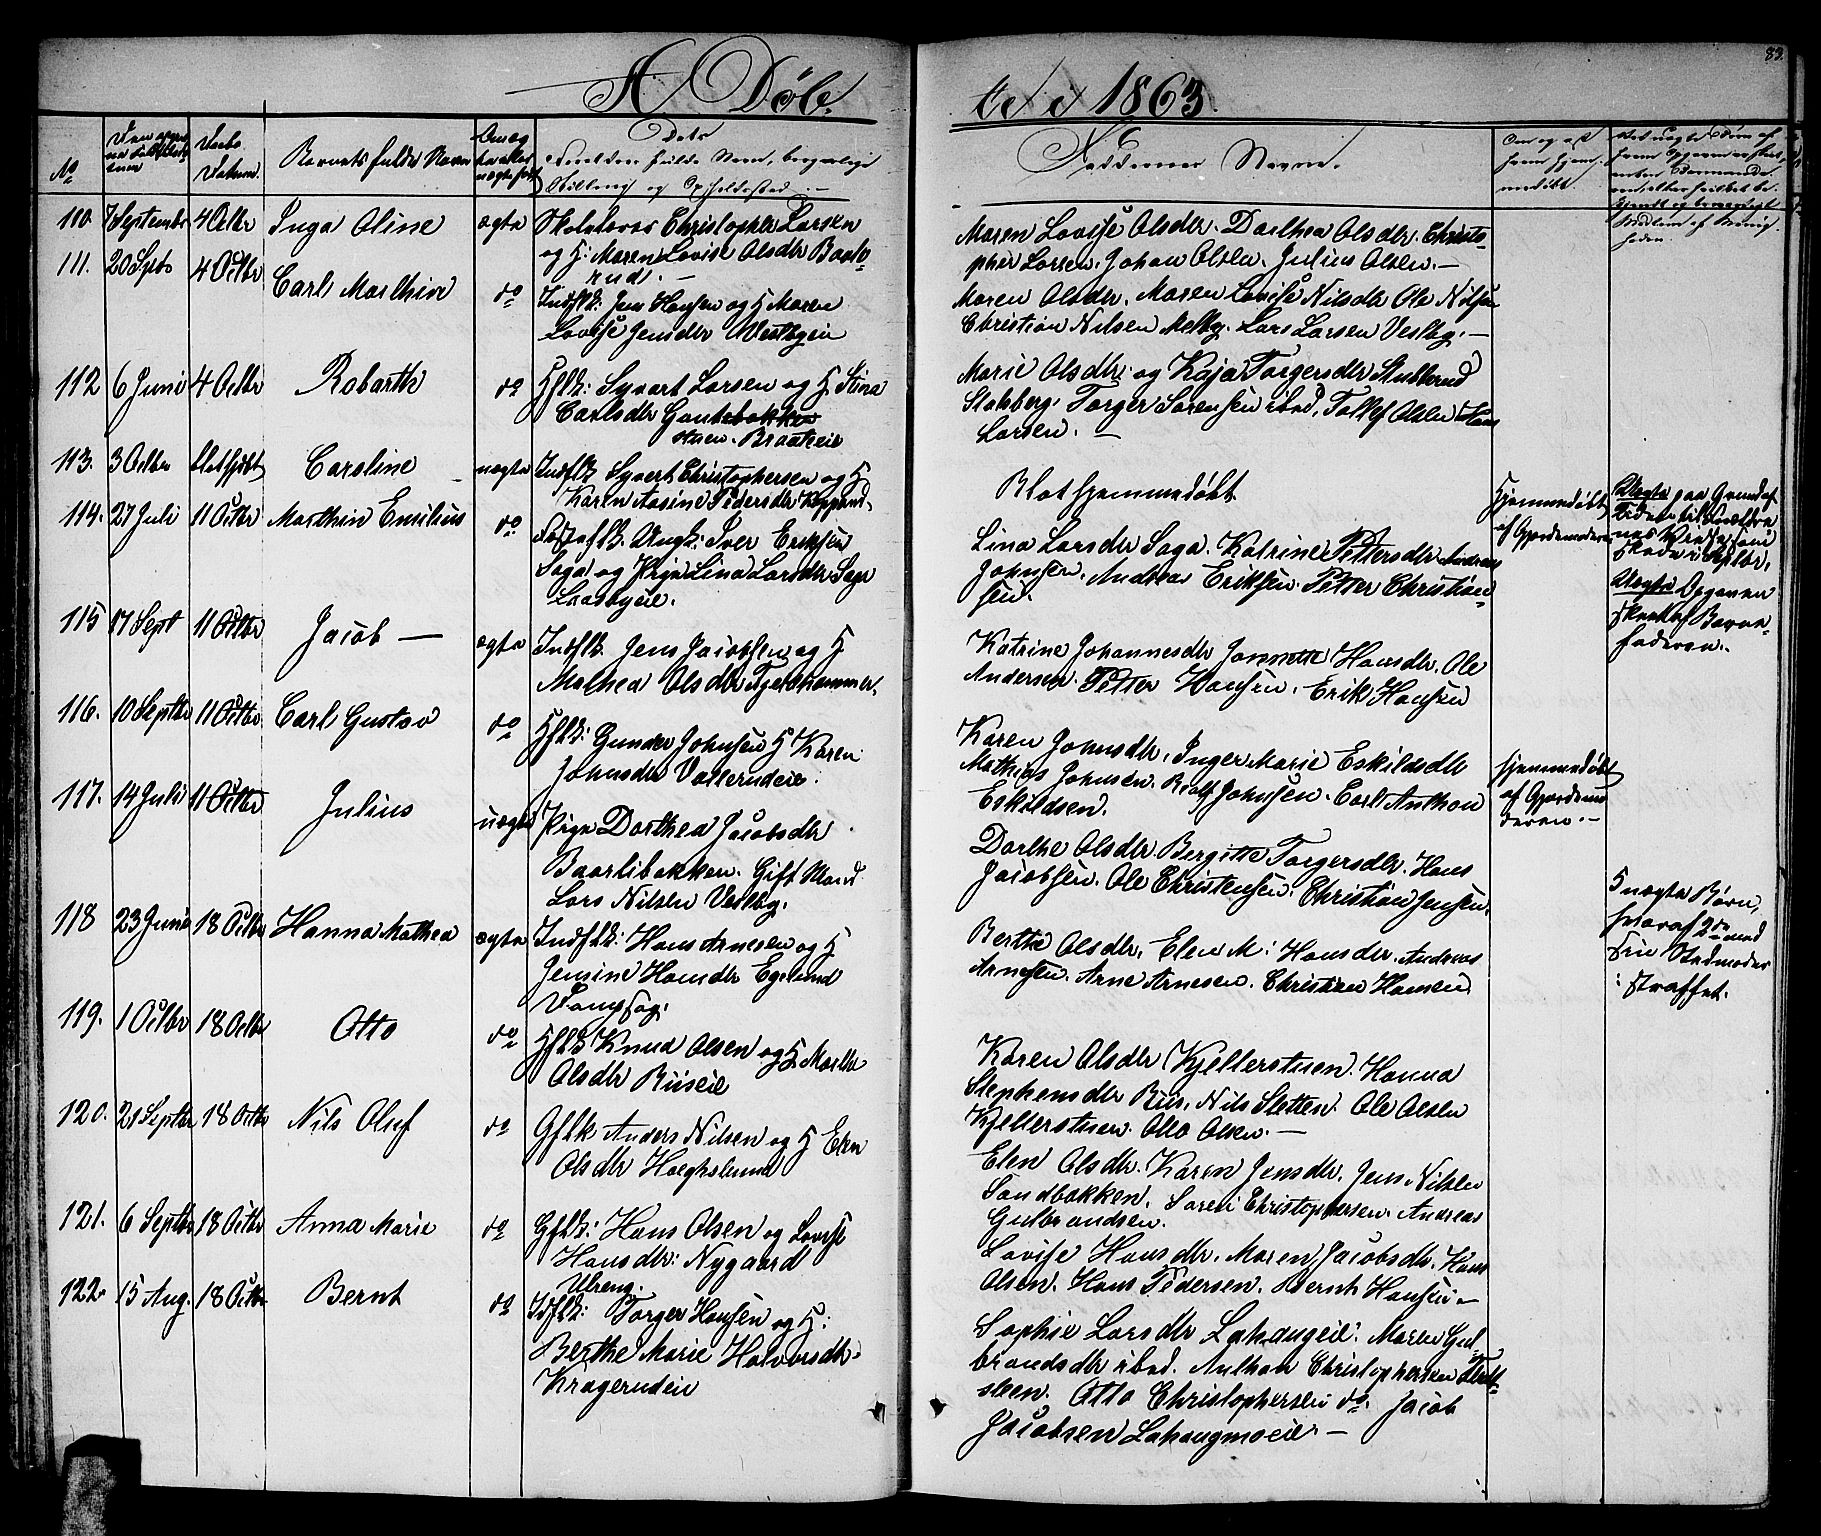 A Døb-
te i 1863.
83.
No
Daabs
Datum.
Barnets fulde Navn
Dets
Forældres fulde Navn, borgerlige
Stilling og Opholdssted.
Faddernes Navn.
110. 7 Septembr 4 Octbr Inga Oline ægte Skolelærer Christopher Larsen
og H. Maren Lovise Olsdtr
Maren Lovise Olsdtr. Dorthea Olsdtr. Christo-
pher Larsen. Johan Olsen. Julius Olsen. —
111. 20 Septb 4 Octbr Carl Marthin do Indflk: Jens Hansen og H Maren
Lovise Jensdtr Vestbyeie
Maren Olsdtr. Maren Lovise Nilsdtr Ole Nilsen
Christian Nilsen Melby. Lars Larsen Vestby. —
112 6 Juni 4 Octbr Robarth do Hflk: Syvert Larsen og H. Stina
Carlsdtr
Braateeie
Marie Olsdtr: og Kaja Torgersdtr Stubberud
Stalsberg. Torger Sørensen ibid. Olsen Hans
Larsen. —
113. 3 Octbr blot hjdbt Caroline uægte Indflk Syvert Christophersen og H
Karen Aasine Pedersdtr
Blot hjemmedøbt
Hjemmedøbt
af Gjordemoderen
Uægte paa Grund af
114. 27 Juli 11 Octbr Marthin Emilius do Ungk: Iver Eriksen
Saga og Pige Lina Larsdtr Saga
Lina Larsdtr Saga. Katrine Pettersdtr Andreas
Johnsen. Andreas Eriksen. Petter Christian-
sen.
Uægte Opgaven
skeet af Barne-
faderen.
115 17 Sept 11 Octbr Jacob — ægte Indflk Jens Jacobsen og H
Mathea Olsdtr
Katrine Johannesdtr Jannette Hansdtr. Ole
Andersen. Petter Hansen. Erik Hansen
116. 10 Septbr 11 Octbr Carl Gustav do Hflk: Gunder Johnsen H Karen
Johnsdtr
Karen Johnsdtr. Inger Marie Eskildsdtr
Mathias Johnsen. Rolf Johnsen. Carl Anthon
Eskildsen.
Hjemmedøbt
af Gjordemo
deren. —
117. 14 Juli 11 Octbr Julius uægte Pige Dorthea Jacobsdtr
Baarlibakken. Gift Mand
Lars Nilsen Vestby.
Dorthe Olsdtr. Bergitte Torgersdtr. Hans
Jacobsen. Ole Christensen. Christian Jensen.
5 uægte Børn,
hvoraf 2de med
straffet.
118 23 Juni 18 Octbr Hanna Mathea ægte Indflk: Hans Arnesen og H
Jensine Hansdtr Egelund
Berthe Olsdtr. Elen M: Hansdtr. Andreas
Arnesen. Arne Arnesen. Christian Hansen
119. 1 Octbr 18 Octbr Otto do Hflk Knud Olsen og H. Marthe
Olsdtr Riiseie
Karen Olsdtr Kjellerstuen. Hanna
Stephensdtr Riis. Nils Sletten. Ole Olsen
Kjellerstuen. Otto Olsen. —
120. 21 Septbr 18 Octbr Nils Oluf do Gflk Anders Nilsen og H Elen
Olsdtr
Elen Olsdtr. Karen Jensdtr. Jens Nilsen
Sandbakken. Søren Christophersen. Andreas
Gulbrandsen.
121. 6 Septbr 18 Octbr Anna Marie do Gflk: Hans Olsen og Lovise
Hansdtr: Nygaard
Lovise Hansdtr. Maren Jacobsdtr. Hans
Olsen. Hans Pedersen. Bernt Hansen —
122. 15 Aug. 18 Octbr Bernt do Idflk: Torger Hansen og H:
Berthe Marie Halvorsdtr.
Kragerudeie
Sophie Larsdtr Maren Gul-
brandsdtr ibid. Anthon Christophersen
Otto Christophersen do. Jacob
Jacobsen